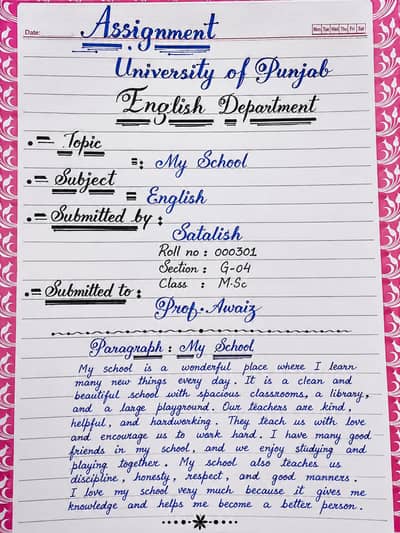 Assignment
Date:
Mon Tue Wed Thu Fri Sat
University of Punjab
English Department
Topic
: My School
Subject
= English
Submitted by :
Satalish
Roll no : 000301
Section : G-04
Class : M.Sc
Submitted to :
Prof. Awaiz
Paragraph : My School
My school is a wonderful place where I learn
many new things every day. It is a clean and
beautiful school with spacious classrooms, a library,
and a large playground. Our teachers are kind,
helpful, and hardworking. They teach us with love
and encourage us to work hard. I have many good
friends in my school, and we enjoy studying and
playing together. My school also teaches us
discipline, honesty, respect, and good manners.
I love my school very much because it gives me
knowledge and helps me become a better person.